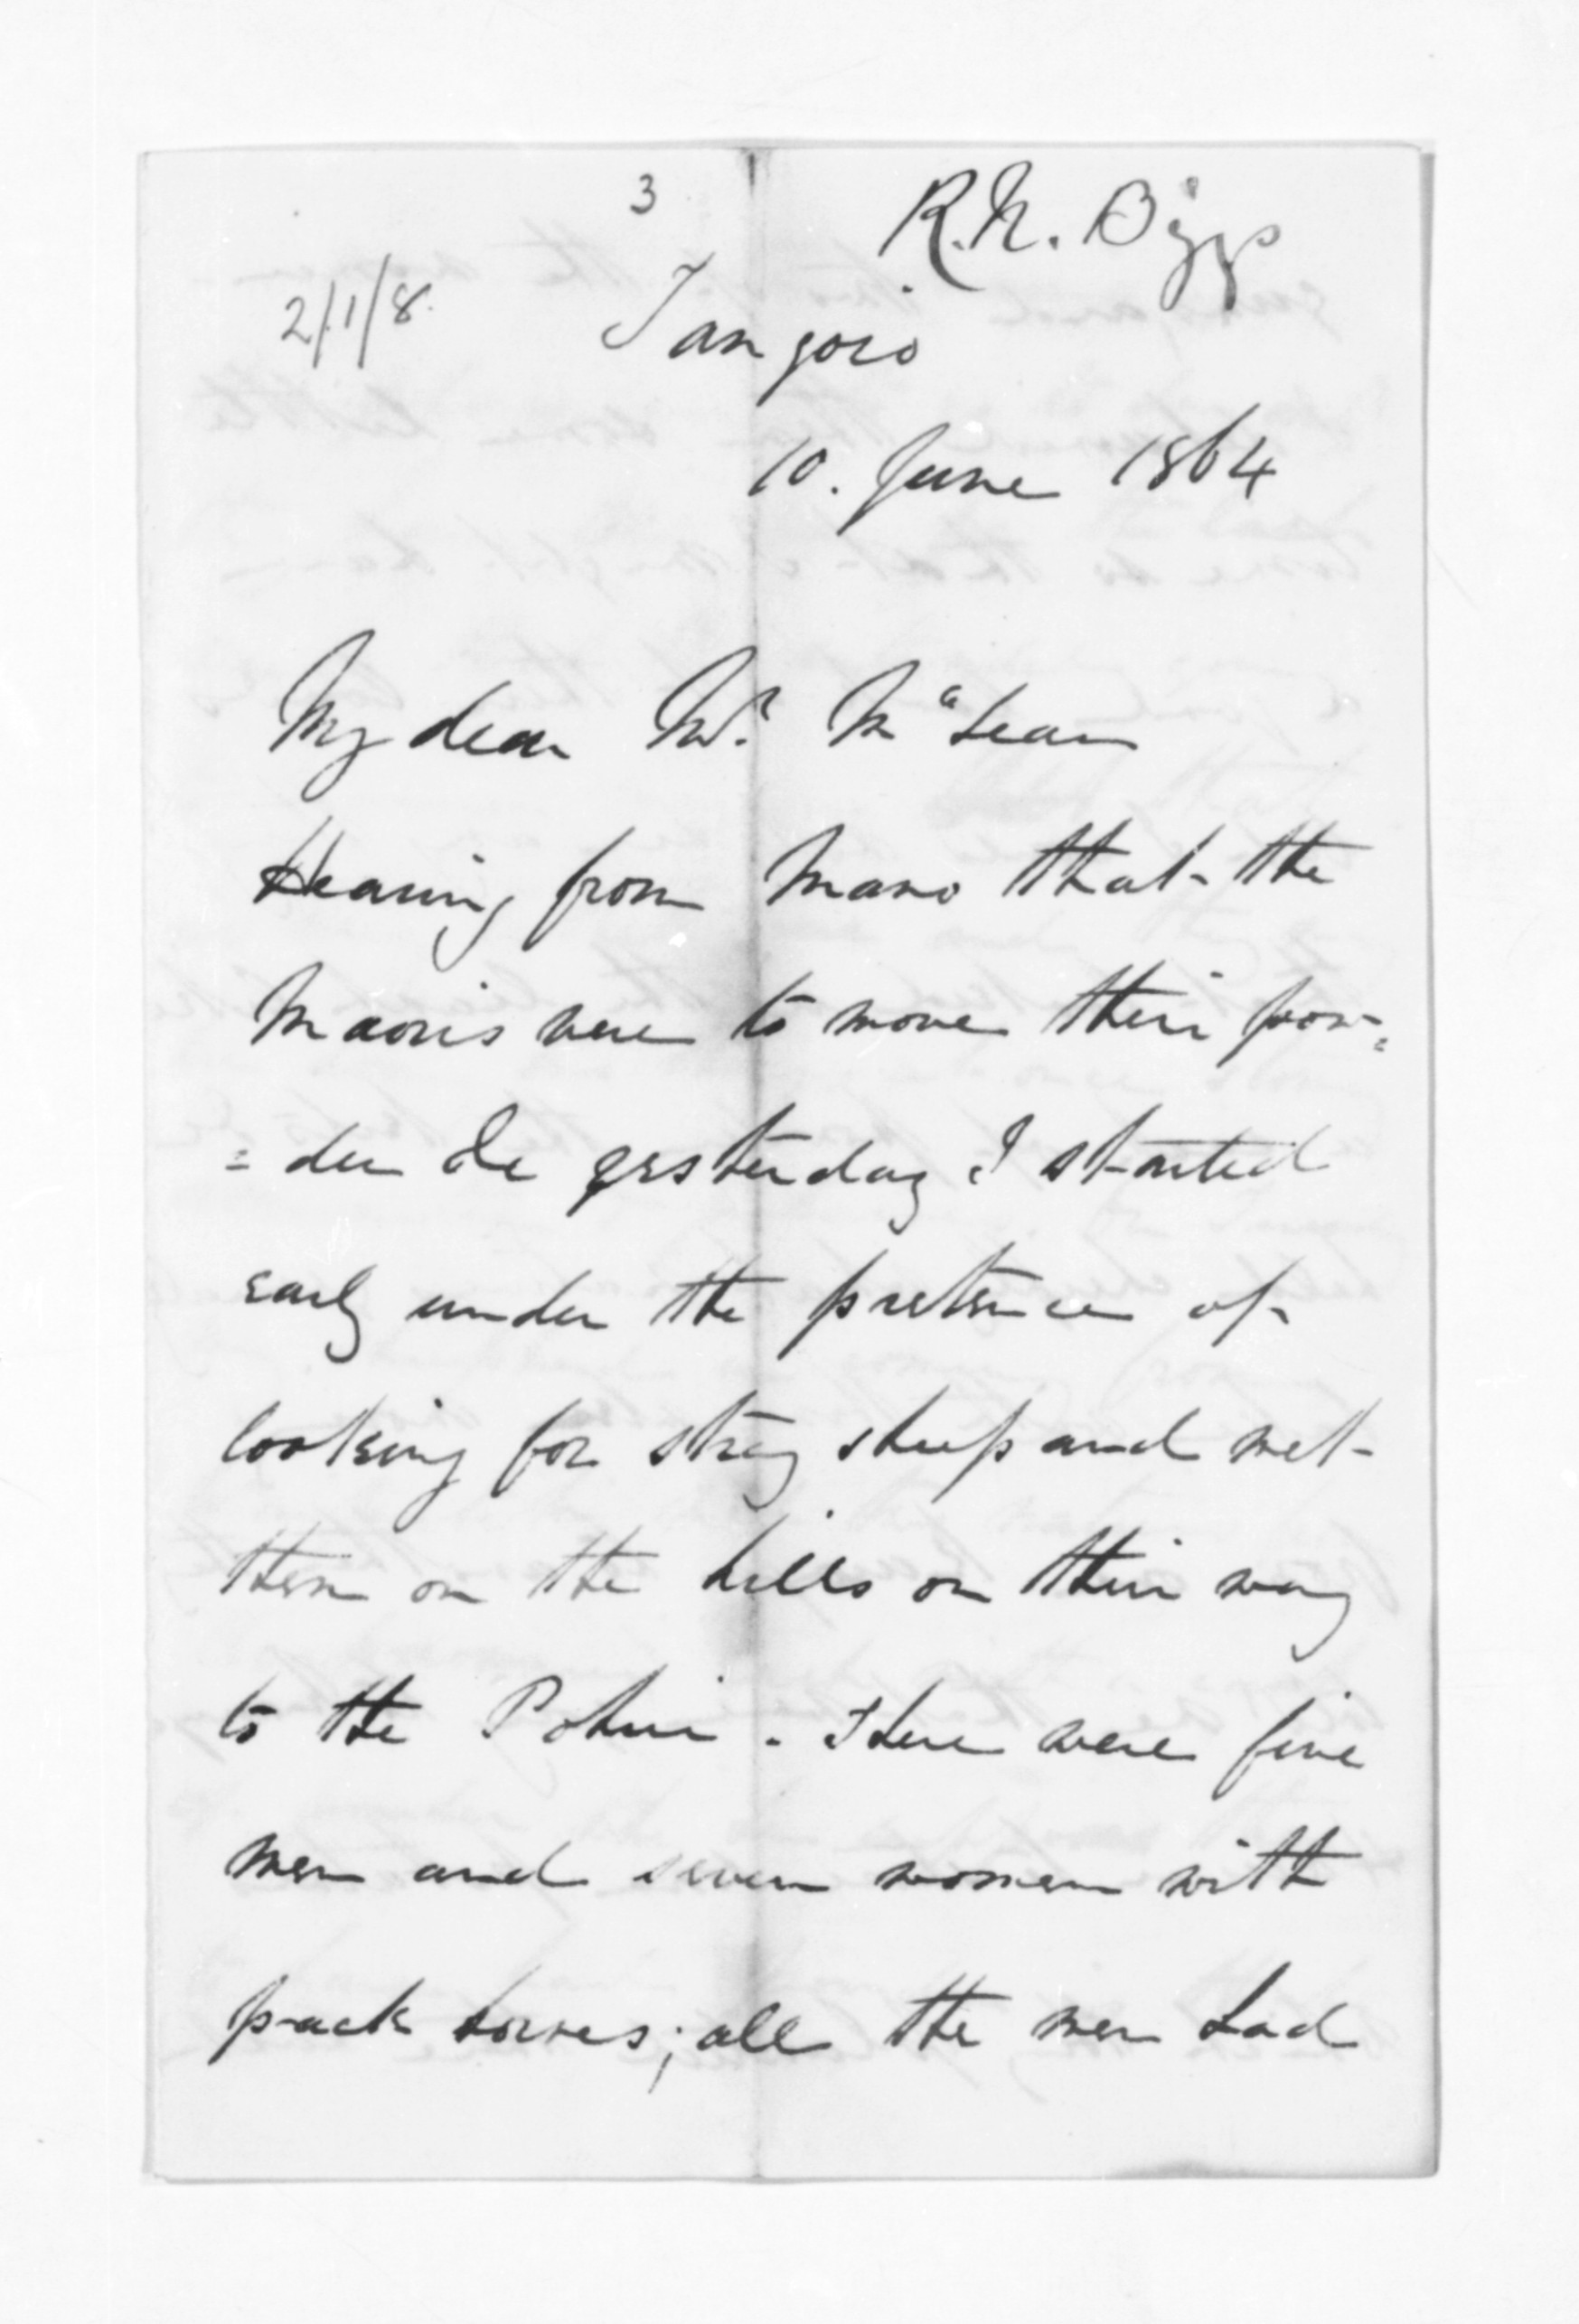 3
R.N. Biggs
2/1/8.
Tangoio
10. June 1864
My dear Mr. McLean
Hearing from Mano that the
Maoris were to move their pow=
=der &c yesterday I started
early under the pretence of
looking for stray sheep and met
them on the hills on their way
to the Pohui. There were five
men and seven women with
pack horses; all the men had